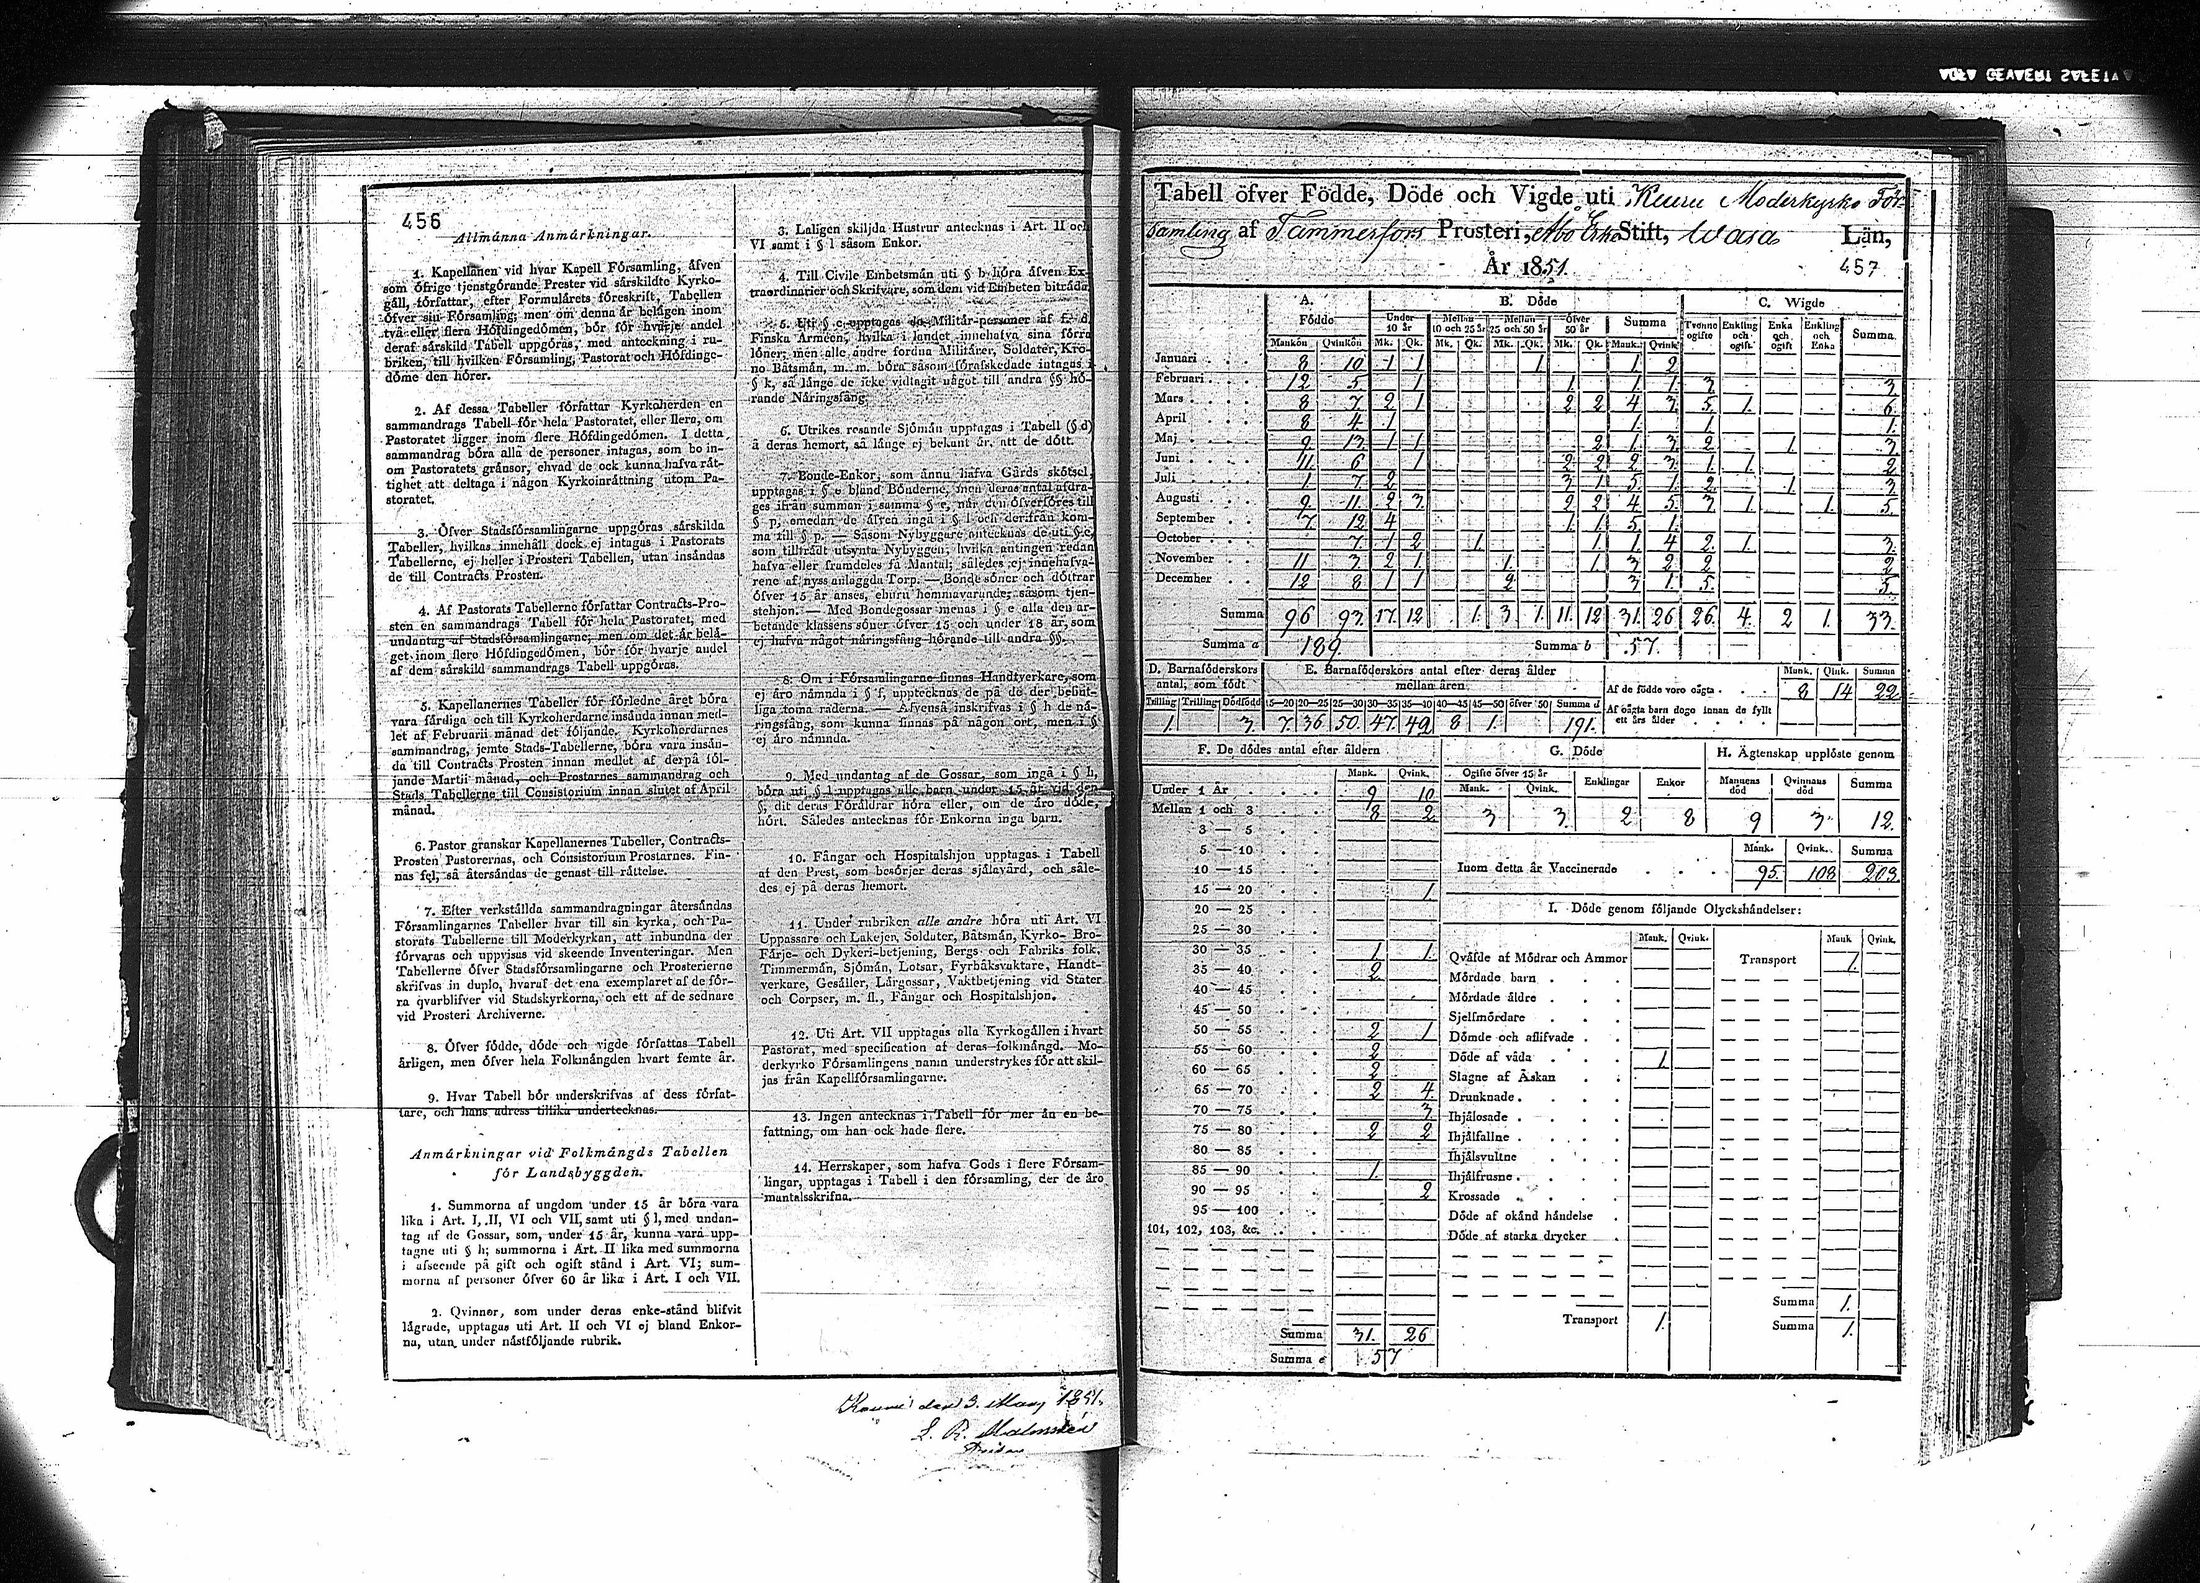 456
Allmänna Anmärkningar.
1. Kapellanen vid hvar Kapell Församling, äfven
som öfrige tjenstgörande Prester vid särskildte Kyrko-
gäll, författar, efter Formulärets föreskrift, Tabellen
öfver sin Församling; men om denna är belägen inom
två eller flera Höfdingedömen, bör för hvarje andel
deraf särskild Tabell uppgöras, med anteckning i ru-
briken, till hvilken Församling, Pastorat och Höfdinge-
döme den hörer.
2. Af dessa Tabeller författar Kyrkoherden en
sammandrags Tabell för hela Pastoratet, eller flera, om
Pastoratet ligger inom flere Höfdingedömen. I detta
sammandrag böra alla de personer intagas, som bo in-
om Pastoratets gränsor, ehvad de ock kunna hafva rät-
tighet att deltaga i någon Kyrkoinrättning utom Pa-
storatet.
3. Öfver Stadsförsamlingarne uppgöras särskilda
Tabeller, hvilkas innehåll dock ej intages i Pastorats
Tabellerne, ej heller i Prosteri Tabellen, utan insändas
de till Contracts Prosten.
4. Af Pastorats Tabellerne författar Contracts-Pro-
sten en sammandrags Tabell för hela Pastoratet, med
undantag af Stadsförsamlingarne; men om det är belä-
get inom flere Höfdingedömen, bör för hvarje andel
af dem särskild sammandrags Tabell uppgöras.
5. Kapellanernes Tabeller för förledne året böra
vara färdiga och till Kyrkoherdarne insända innan med-
let af Februarii månad det följande. Kyrkoherdarnes
sammandrag, jemte Stads-Tabellerne, böra vara insän-
da till Contracts Prosten innan medlet af derpå föl-
jande Martii månad, och Prostarnes sammandrag och
Stads Tabellerne till Consistorium innan slutet af April
månad.
6. Pastor granskar Kapellanernes Tabeller, Contracts-
Prosten Pastorernas, och Consistorium Prostarnes. Fin-
nas fel, så återsändas de genast till rättelse.
7. Efter verkställda sammandragningar återsändas
Församlingarnes Tabeller hvar till sin kyrka, och Pa-
storats Tabellerne till Moderkyrkan, att inbundna der
förvaras och uppvisas vid skeende Inventeringar. Men
Tabellerne öfver Stadsförsamlingarne och Prosterierne
skrifvas in duplo, hvaraf det ena exemplaret af de för-
ra qvarblifver vid Stadskyrkorna, och ett af de sednare
vid Prosteri Archiverne.
8. Öfver födde, döde och vigde författas Tabell
årligen, men öfver hela Folkmängden hvart femte år.
9. Hvar Tabell bör underskrifvas af dess förfat-
tare, och hans adress tillika undertecknas.
Anmärkningar vid Folkmängds Tabellen
för Landsbyggden.
1. Summorna af ungdom under 15 år böra vara
lika i Art. I, II, VI och VII, samt uti § l, med undan-
tag af de Gossar, som, under 15 år, kunna vara upp-
tagne uti § h; summorna i Art. II lika med summorna
i afseende på gift och ogift stånd i Art. VI; sum-
morna af personer öfver 60 år lika i Art. I och VII.
2. Qvinnor, som under deras enke-stånd blifvit
lägrade, upptagas uti Art. II och VI ej bland Enkor-
na, utan under nästföljande rubrik.
3. Laligen skiljda Hustrur antecknas i Art. II och
VI samt i § l såsom Enkor.
4. Till Civile Embetsmän uti § b höra äfven Ex-
traordinarier och Skrifvare, som dem vid Embeten biträda.
5. Uti § c upptagas de Militär-personer af f. d.
Finska Arméen, hvilka i landet innehafva sina förra
löner; men alle andre fordna Militärer, Soldater, Kro-
no Båtsmän, m. m. böra såsom förafskedade intagas i
§ k, så länge de icke vidtagit något till andra §§ hö-
rande Näringsfång.
6. Utrikes resande Sjömän upptagas i Tabell (§ d)
å deras hemort, så länge ej bekant är, att de dött.
7. Bonde-Enkor, som ännu hafva Gårds skötsel,
upptagas i § e bland Bönderne, men deras antal afdra-
ges ifrån summan i samma § e, när den öfverföres till
§ p, emedan de äfven ingå i § l och derifrån kom-
ma till § p. — Såsom Nybyggare antecknas de uti § e,
som tillträdt utsynta Nybyggen, hvilka antingen redan
hafva eller framdeles få Mantal; således ej innehafva-
rene af nyss anlaggda Torp. — Bonde söner och döttrar
öfver 15 år anses, ehuru hemmavarande, såsom tjen-
stehjon. — Med Bondegossar menas i § e alla den ar-
betande klassens söner öfver 15 och under 18 år, som
ej hafva något näringsfång hörande till andra §§.
8. Om i Församlingarne finnas Handtverkare, som
ej äro nämnda i § f, upptecknas de på de der befint-
liga toma raderna. — Äfvenså inskrifvas i § h de nä-
ringsfång, som kunna finnas på någon ort, men i §
ej äro nämnda.
9. Med undantag af de Gossar, som ingå i § h,
böra uti § l upptagas alle barn under 15 år vid den
§, dit deras Föräldrar höra eller, om de äro döde,
hört. Således antecknas för Enkorna inga barn.
10. Fångar och Hospitalshjon upptagas i Tabell
af den Prest, som besörjer deras själavård, och såle-
des ej på deras hemort.
11. Under rubriken alle andre höra uti Art. VI
Uppassare och Lakejer, Soldater, Båtsmän, Kyrko- Bro-
Färje- och Dykeri-betjening, Bergs- och Fabriks folk,
Timmermän, Sjömän, Lotsar, Fyrbåksvaktare, Handt-
verkare, Gesäller, Lärgossar, Vaktbetjening vid Stater
och Corpser, m. fl., Fångar och Hospitalshjon.
12. Uti Art. VII upptagas alla Kyrkogällen i hvart
Pastorat, med specification af deras folkmängd. Mo-
derkyrko Församlingens namn understrykes för att skil-
jas från Kapellförsamlingarne.
13. Ingen antecknas i Tabell för mer än en be-
fattning, om han ock hade flere.
14. Herrskaper, som hafva Gods i flere Försam-
lingar, upptagas i Tabell i den församling, der de äro
mantalsskrifna.
den 3. Mars 1851.
L. R. Malmstén
Tabell öfver Födde, Döde och Vigde uti Kuru Moderkyrko För-
samling af Tammerfors Prosteri, Åbo Erke Stift, Wasa Län,
År 1851.
457
A. Födde B. Döde C. Wigde
Under 10 år Mellan 10 och 25 år Mellan 25 och 50 år öfver 50 år Summa Tvenne ogifte Enkling och ogift Enka och ogift Enkling och Enka Summa
Mankön Qvinkön Mk. Qk. Mk. Qk. Mk. Qk. Mk. Qk. Mank. Qvink.
Januari 8 10 1 1 1 1 2
Februari 12 5 1 1 1 1 3 3
Mars 8 7 2 1 2 2 4 3 5 1 6
April 8 4 1 1 1 1
Maj 9 13 1 1 2 1 3 2 1 3
Juni 11 6 1 2 2 2 3 1 1 2
Juli 1 7 2 3 1 5 1 2 1 3
Augusti 9 11 2 3 2 2 4 5 3 1 1 5
September 7 12 4 1 1 5 1
October 7 1 2 1 1 1 4 2 1 3
November 11 3 2 1 1 1 3 2 2 2
December 12 8 1 1 2 3 1 5 5
Summa 96 93 17 12 1 3 1 11 12 31 26 26 4 2 1 33
Summa a 189 Summa b 57
D. Barnaföderskors antal, som födt
Trilling Trilling Dödfödt
1 3
E. Barnaföderskors antal efter deras ålder mellan åren
15—20 20—25 25—30 30—35 35—40 40—45 45—50 öfver 50 Summa d
7 36 50 47 42 8 1 191
Mank. Qvink. Summa
Af de födde voro oägta 8 14 22
Af oägta barn dogo innan de fyllt
ett års ålder
F. De dödes antal efter åldern
Mank. Qvink.
Under 1 År 9 10
Mellan 1 och 3 8 2
3 — 5
5 — 10
10 — 15
15 — 20 1
20 — 25
25 — 30
30 — 35 1 1
35 — 40 2
40 — 45
45 — 50
50 — 55 2 1
55 — 60 2
60 — 65 2
65 — 70 2 4
70 — 75 3
75 — 80 2 2
80 — 85
85 — 90 1
90 — 95 2
95 — 100
101, 102, 103, &c.
Summa 31 26
Summa e 57
G. Döde
Ogifte öfver 15 år Enklingar Enkor
Mank. Qvink.
3 3 2 8
H. Ägtenskap upplöste genom
Mannens död Qvinnans död Summa
9 3 12
Mank. Qvink. Summa
Inom detta år Vaccinerade 95 108 203
I. Döde genom följande Olyckshändelser:
Mank. Qvink. Mank Qvink.
Qväfde af Mödrar och Ammor Transport 1
Mördade barn
Mördade äldre
Sjelfmördare
Dömde och aflifvade
Döde af våda 1
Slagne af Åskan
Drunknade
Ihjälosade
Ihjälfallne
Ihjälsvultne
Ihjälfrusne
Krossade
Döde af okänd händelse
Döde af starka drycker
Summa 1
Transport 1 Summa 1